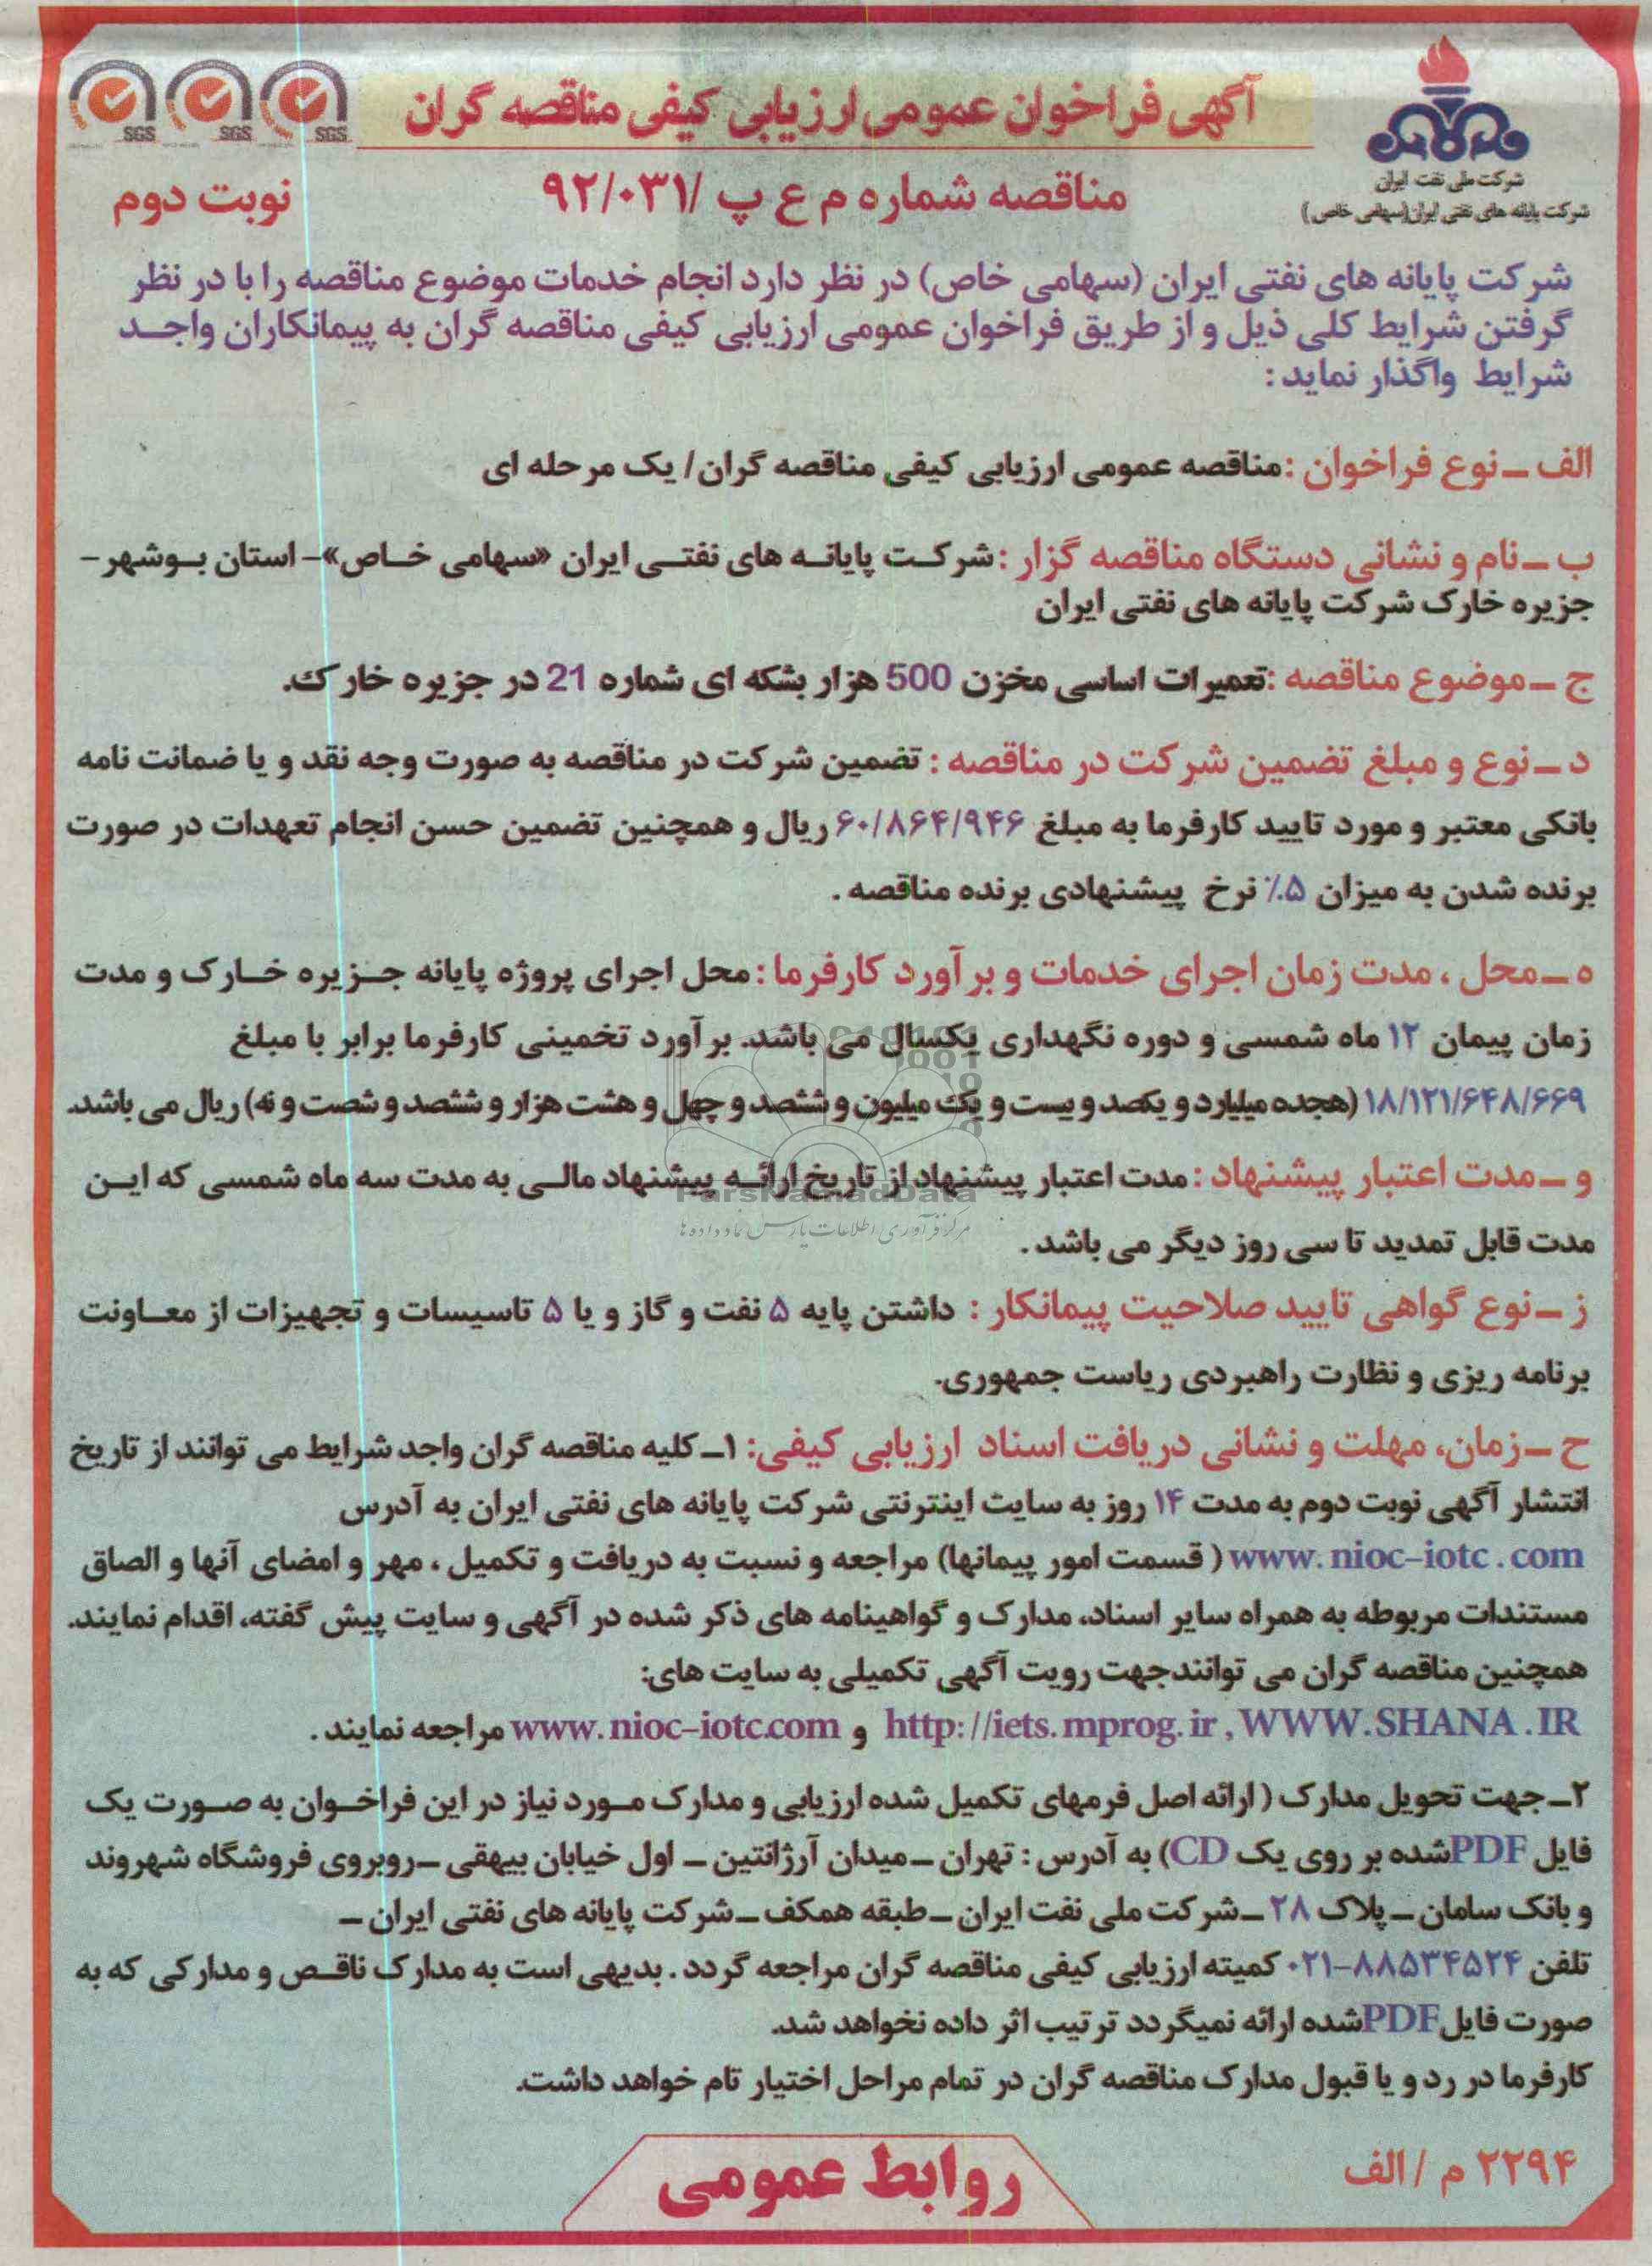 آگهی فراخوان عمومی ارزیابی کیفی مناقصه گران
SGS SGS SGS
شرکت ملی نفت ایران
شرکت پایانه های نفتی ایران (سهامی خاص)
مناقصه شماره م ع پ /۹۲/۰۳۱
نوبت دوم
شرکت پایانه های نفتی ایران (سهامی خاص) در نظر دارد انجام خدمات موضوع مناقصه را با در نظر
گرفتن شرایط کلی ذیل و از طریق فراخوان عمومی ارزیابی کیفی مناقصه گران به پیمانکاران واجد
شرایط واگذار نماید :
الف - نوع فراخوان :مناقصه عمومی ارزیابی کیفی مناقصه گران/ یک مرحله ای
ب - نام و نشانی دستگاه مناقصه گزار :شرکت پایانه های نفتی ایران «سهامی خاص»- استان بوشهر -
جزیره خارک شرکت پایانه های نفتی ایران
ج - موضوع مناقصه :تعمیرات اساسی مخزن 500 هزار بشکه ای شماره 21 در جزیره خارک.
د - نوع و مبلغ تضمین شرکت در مناقصه : تضمین شرکت در مناقصه به صورت وجه نقد و یا ضمانت نامه
بانکی معتبر و مورد تایید کارفرما به مبلغ ۶۰/۸۶۴/۹۴۶ ریال و همچنین تضمین حسن انجام تعهدات در صورت
برنده شدن به میزان ۵٪ نرخ پیشنهادی برنده مناقصه .
ه - محل ، مدت زمان اجرای خدمات و برآورد کارفرما : محل اجرای پروژه پایانه جزیره خارک و مدت
زمان پیمان ۱۲ ماه شمسی و دوره نگهداری یکسال می باشد. برآورد تخمینی کارفرما برابر با مبلغ
۱۸/۱۲۱/۶۴۸/۶۶۹ (هجده میلیارد و یکصد و بیست و یک میلیون و ششصد و چهل و هشت هزار و ششصد و شصت و نه) ریال می باشد.
و - مدت اعتبار پیشنهاد : مدت اعتبار پیشنهاد از تاریخ ارائه پیشنهاد مالی به مدت سه ماه شمسی که این
ParsNamadData
مرکز فرآوری اطلاعات پارس نماد داده ها
مدت قابل تمدید تا سی روز دیگر می باشد .
ز - نوع گواهی تایید صلاحیت پیمانکار : داشتن پایه ۵ نفت و گاز و یا ۵ تاسیسات و تجهیزات از معاونت
برنامه ریزی و نظارت راهبردی ریاست جمهوری.
ح - زمان، مهلت و نشانی دریافت اسناد ارزیابی کیفی: ۱- کلیه مناقصه گران واجد شرایط می توانند از تاریخ
انتشار آگهی نوبت دوم به مدت ۱۴ روز به سایت اینترنتی شرکت پایانه های نفتی ایران به آدرس
www.nioc-iotc.com ( قسمت امور پیمانها) مراجعه و نسبت به دریافت و تکمیل ، مهر و امضای آنها و الصاق
مستندات مربوطه به همراه سایر اسناد، مدارک و گواهینامه های ذکر شده در آگهی و سایت پیش گفته، اقدام نمایند.
همچنین مناقصه گران می توانندجهت رویت آگهی تکمیلی به سایت های:
http://iets.mprog.ir , WWW.SHANA.IR و www.nioc-iotc.com مراجعه نمایند .
۲- جهت تحویل مدارک ( ارائه اصل فرمهای تکمیل شده ارزیابی و مدارک مورد نیاز در این فراخوان به صورت یک
فایل PDFشده بر روی یک CD) به آدرس : تهران - میدان آرژانتین - اول خیابان بیهقی - روبروی فروشگاه شهروند
و بانک سامان - پلاک ۲۸ - شرکت ملی نفت ایران - طبقه همکف - شرکت پایانه های نفتی ایران -
تلفن ۸۸۵۳۴۵۲۴-۰۲۱ کمیته ارزیابی کیفی مناقصه گران مراجعه گردد . بدیهی است به مدارک ناقص و مدارکی که به
صورت فایلPDFشده ارائه نمیگردد ترتیب اثر داده نخواهد شد.
کارفرما در رد و یا قبول مدارک مناقصه گران در تمام مراحل اختیار تام خواهد داشت.
۲۲۹۴ م / الف
روابط عمومی